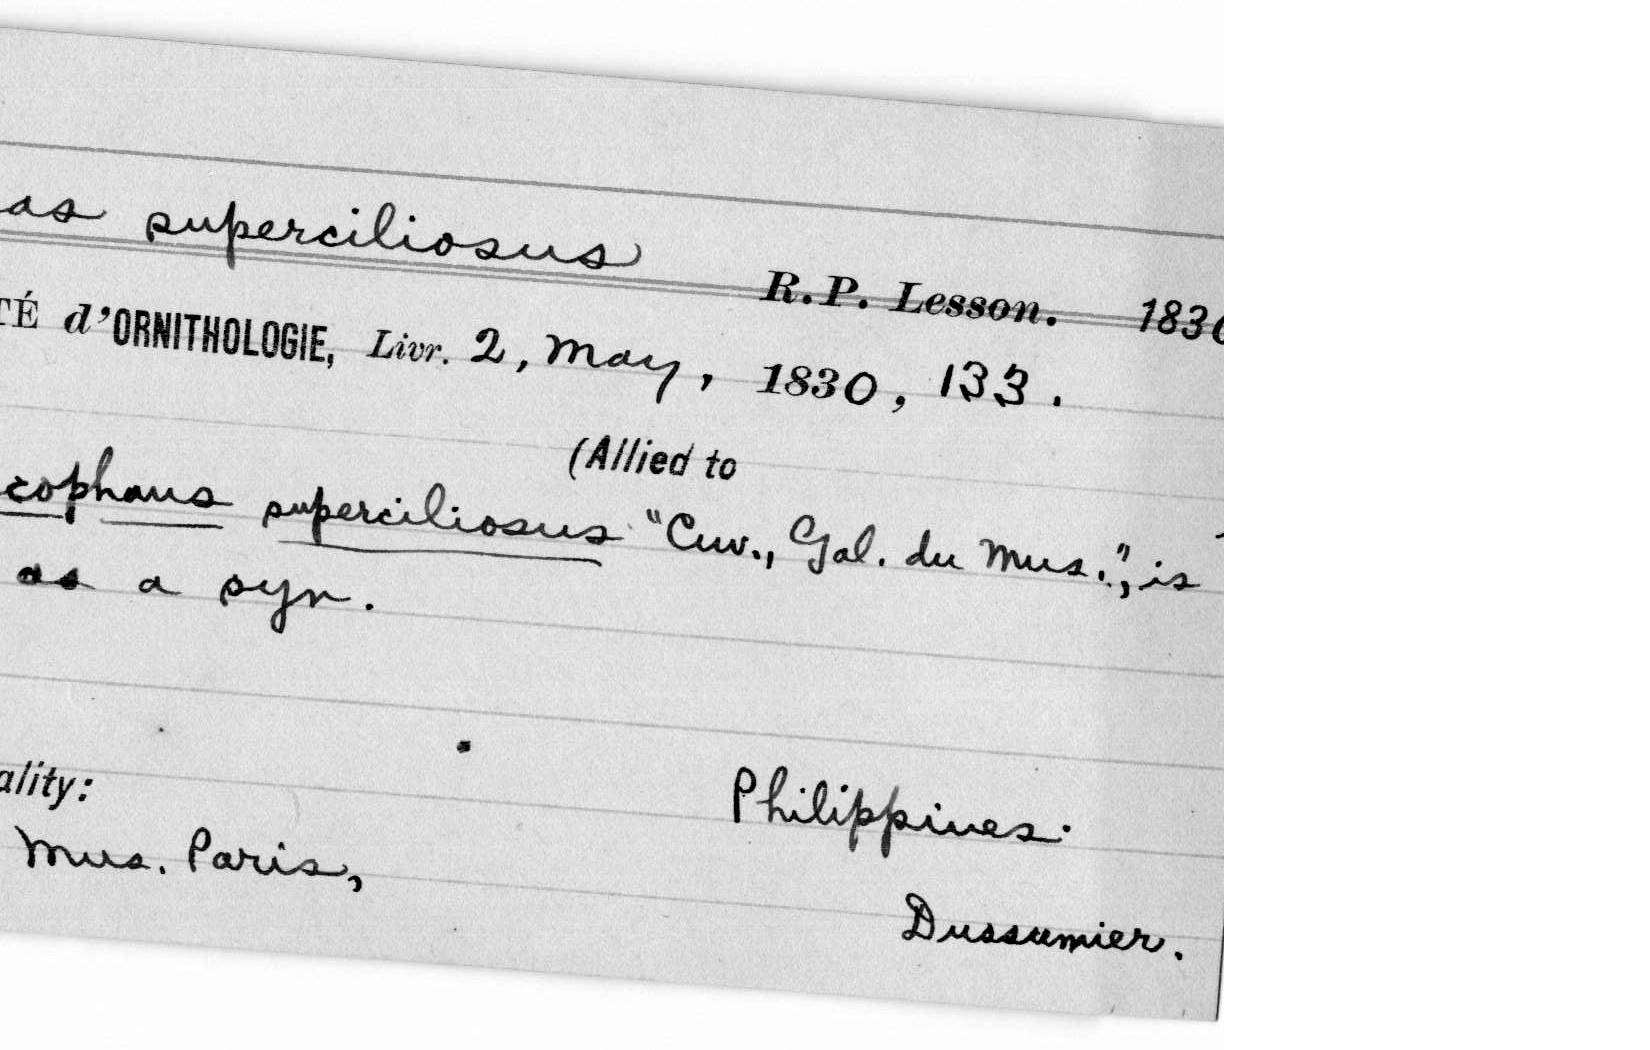 as superciliosus R.P. Lesson. 1830
TÉ d'ORNITHOLOGIE, Livr. 2, May, 1830, 133.
(Allied to
cophaus superciliosus "Cuv., Gal. du Mus.", is
as a syn.
ality: Philippines.
Mus. Paris, Dussumier.